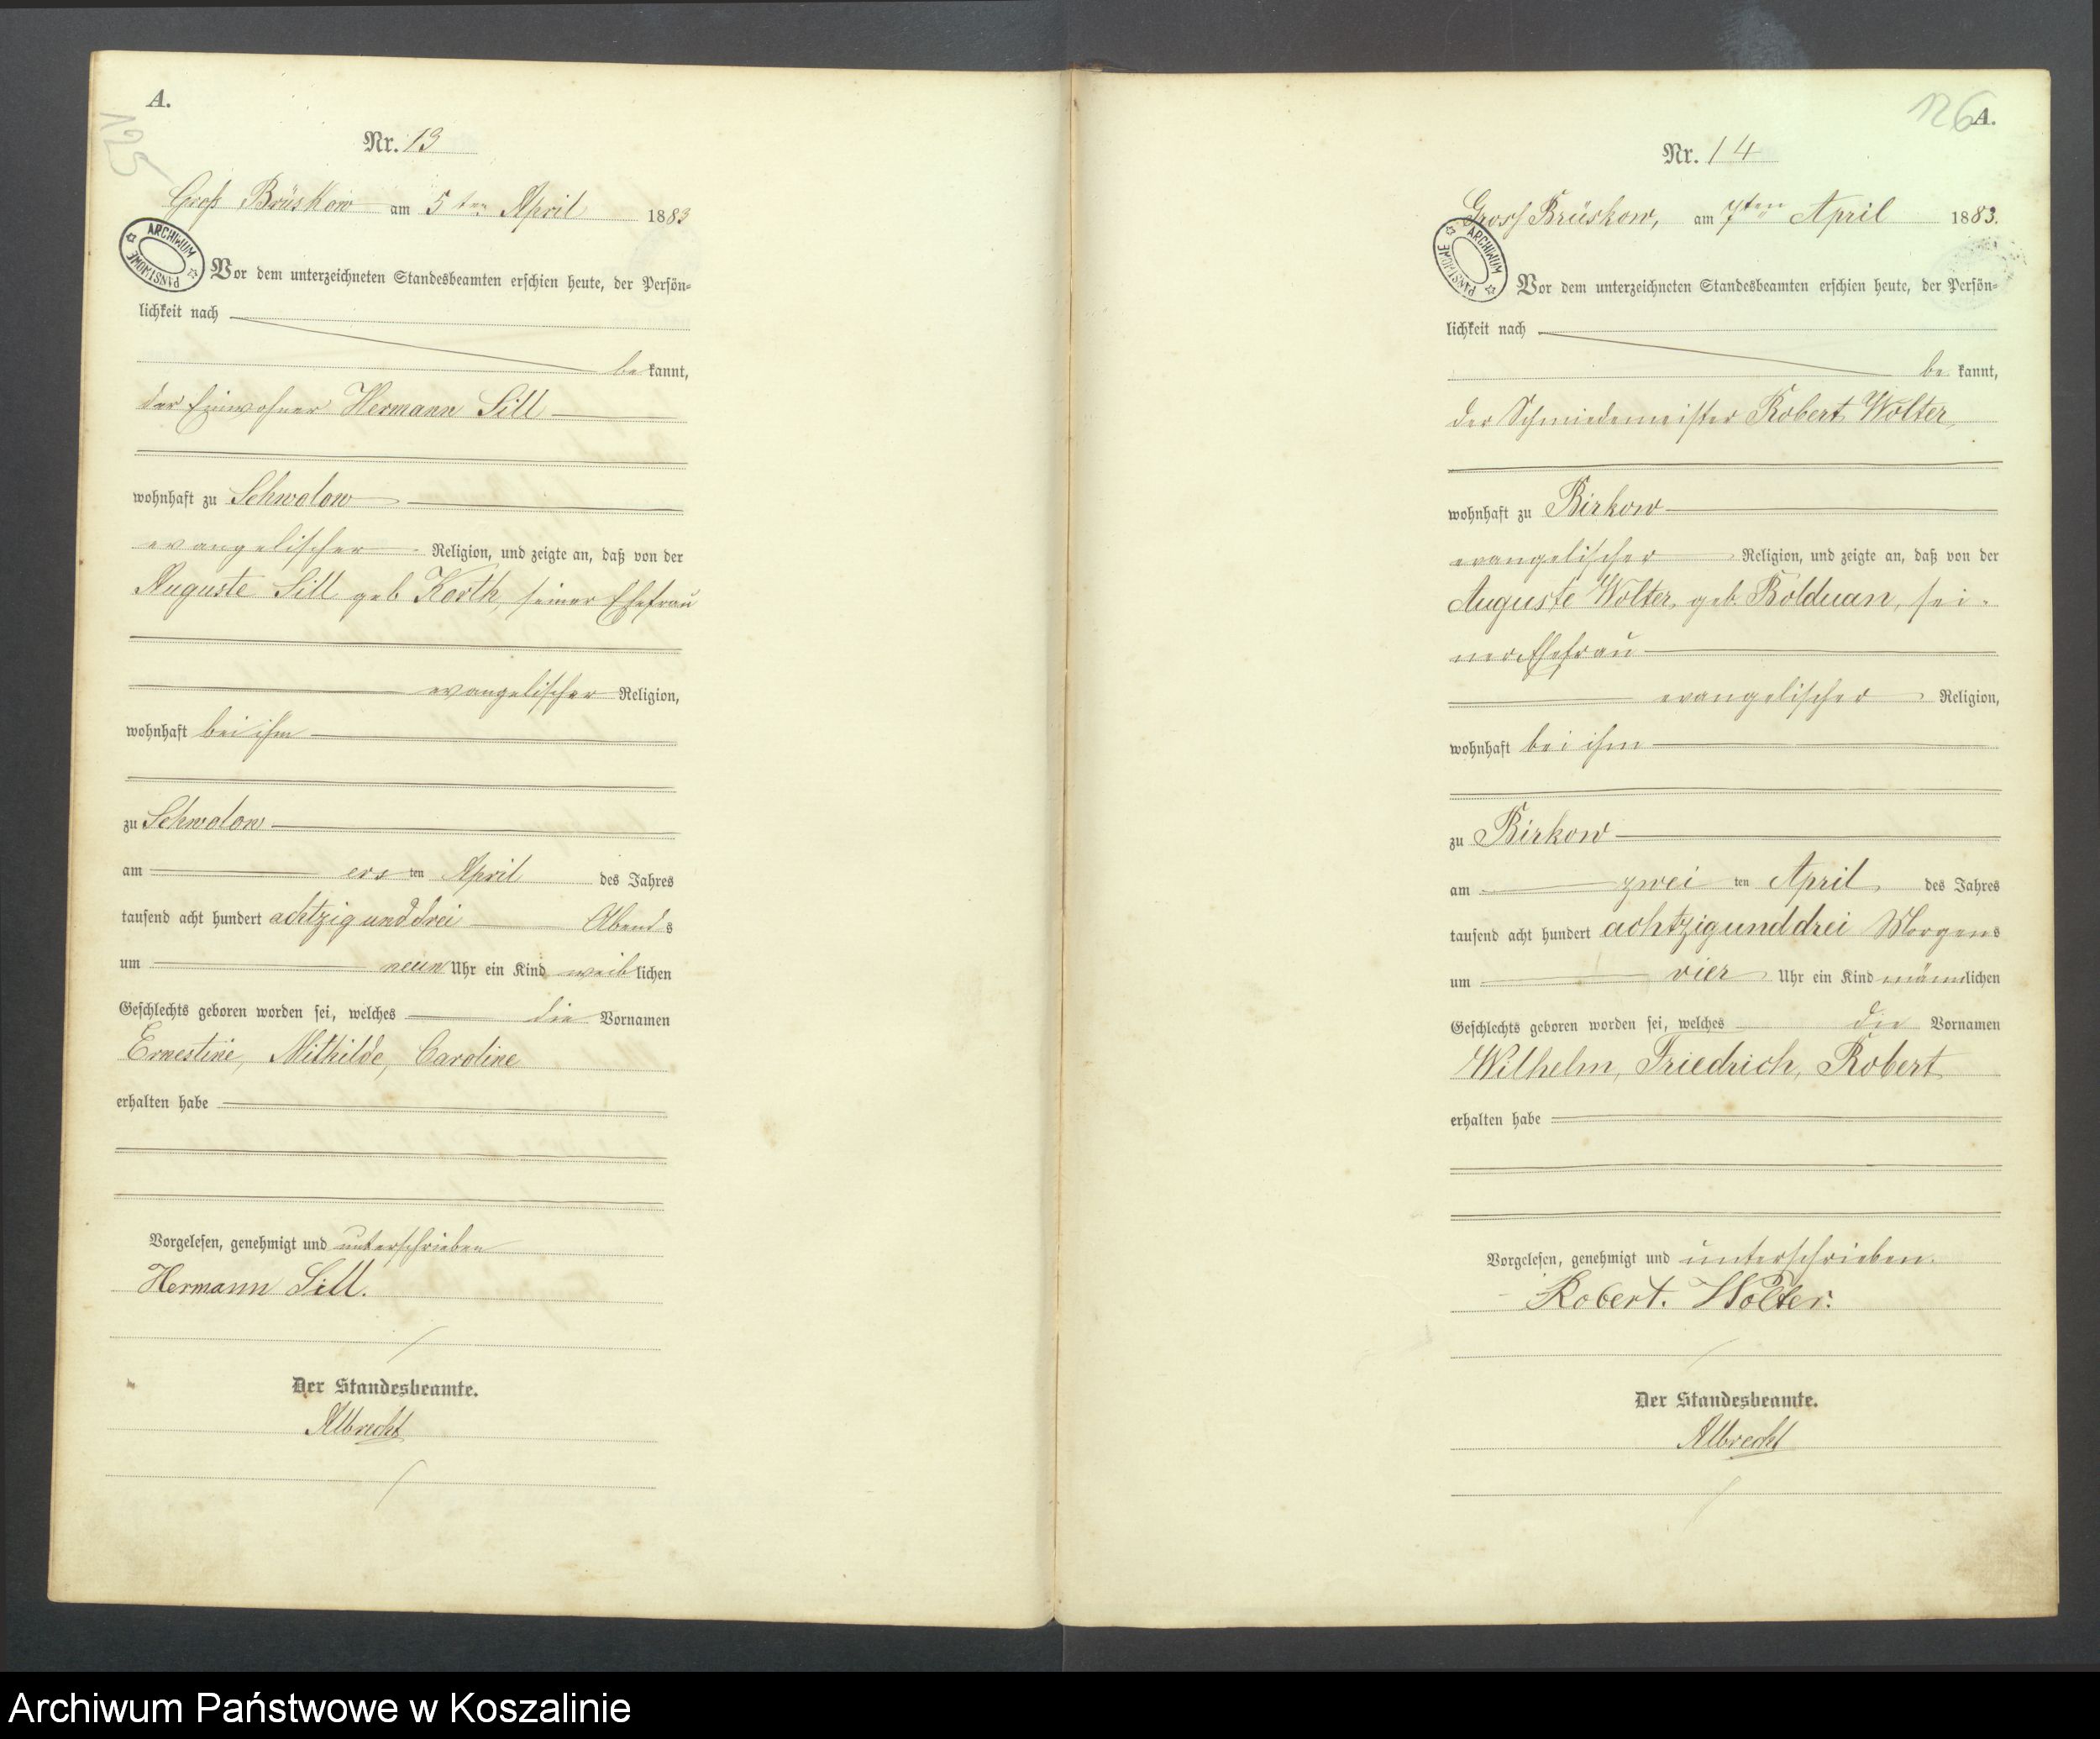 A.
125
Nr. 13
Groß Brüskow am 5ten April 1883
ARCHIWUM PAŃSTWOWE
Vor dem unterzeichneten Standesbeamten erschien heute, der Persön-
lichkeit nach
be kannt,
der Einwohner Hermann Sill
wohnhaft zu Schwolow
evangelischer Religion, und zeigte an, daß von der
Auguste Sill geb Korth, seiner Ehefrau
evangelischer Religion,
wohnhaft bei ihm
zu Schwolow
am ers ten April des Jahres
tausend acht hundert achtzig und drei Abends
um neun Uhr ein Kind weiblichen
Geschlechts geboren worden sei, welches die Vornamen
Ernestine, Mithilde, Caroline
erhalten habe
Vorgelesen, genehmigt und unterschrieben
Hermann Sill.
Der Standesbeamte.
Albrecht
126
A.
Nr. 14
Gross Brüskow, am 7ten April 1883.
ARCHIWUM PAŃSTWOWE
Vor dem unterzeichneten Standesbeamten erschien heute, der Persön-
lichkeit nach
be kannt,
der Schmiedemeister Robert Wolter,
wohnhaft zu Birkow
evangelischer Religion, und zeigte an, daß von der
Auguste Wolter, geb. Bolduan, sei-
ner Ehefrau
evangelischer Religion,
wohnhaft bei ihm
zu Birkow
am zwei ten April, des Jahres
tausend acht hundert achtzigunddrei Morgens
um vier Uhr ein Kind männlichen
Geschlechts geboren worden sei, welches die Vornamen
Wilhelm, Friedrich, Robert
erhalten habe
Vorgelesen, genehmigt und unterschrieben.
Robert. Wolter.
Der Standesbeamte.
Albrecht
Archiwum Państwowe w Koszalinie